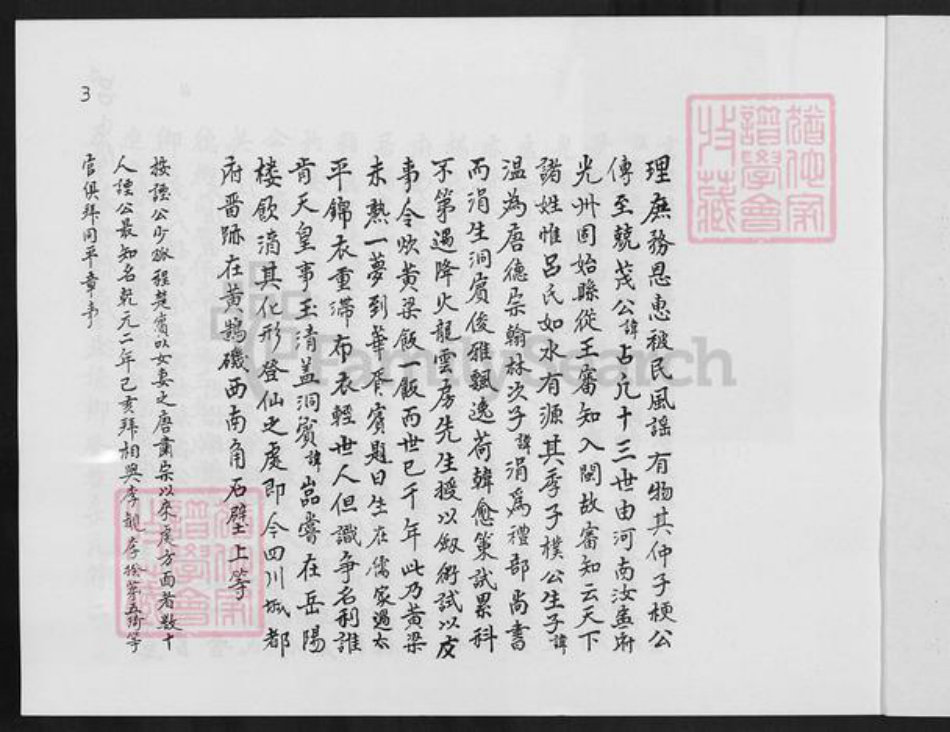 理庶務恩惠被民風謠有物其仲子梗公
傳至兢茂公諱占凡十三世由河南汝盂府
光州固始縣從王審知入閩故審知云天下
諸姓惟呂民如水有源其季子樸公生子諱
温為唐德宗翰林次子諱涓為禮部尚書
而涓生洞賓俊雅飄逸荷韓愈策試累科
不第遇降火龍雲房先生授以劔術試以皮
事令炊黃梁飯一飯而世已千年此乃黃梁
未熟一夢到華胥賓題曰生在儒家遇太
平錦衣重滞布衣輕世人但識争名利誰
肯天皇事玉清盖洞賓諱嵒嘗在岳陽
楼飲酒其化形登仙之處即今四川城都
府晋跡在黃鶴磯西南角石壁上等
按諲公少孤程楚賓以女妻之唐肅宗以來處方面者数十
人諲公最知名乾元二年己亥拜相與李峴李揆第五琦等
官俱拜同平章事
3
猶他家譜學會收藏
猶他家譜學會收藏
FamilySearch